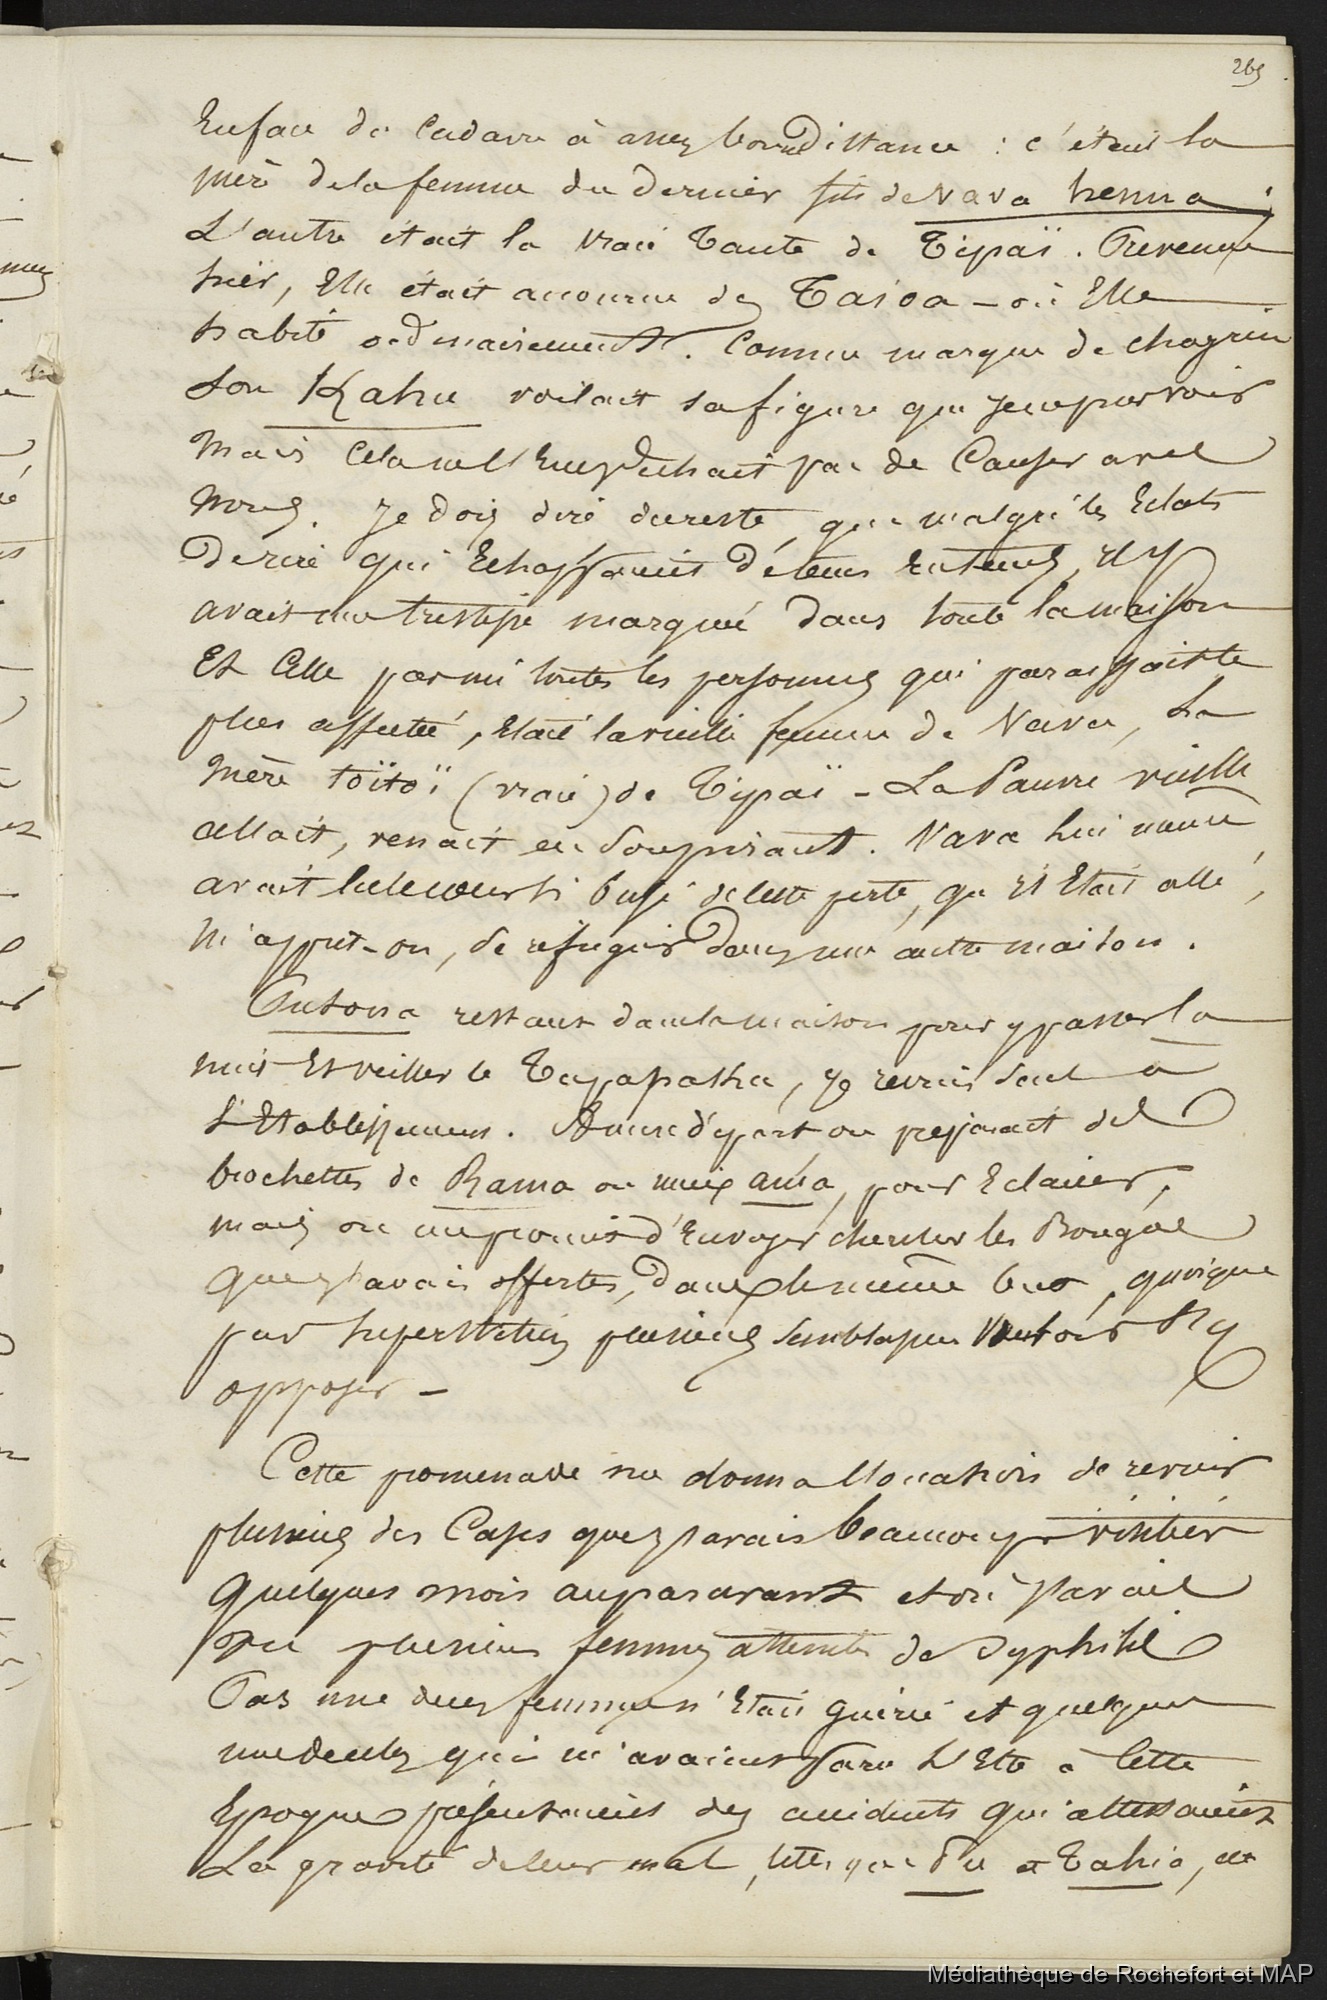 265
En face du cadavre à assez bonne distance : c'était la
mère de la femme du dernier fils de Vavahenua ;
L'autre était la vraie tante de Tipaï. Prévenue
hier, Elle était accourue de Taioa – où Elle
habite ordinairement. Comme marque de chagrin
son Kahu voilait sa figure que je ne pus voir
Mais cela ne l'empêchait pas de causer avec
nous. Je dois dire du reste, que malgré les Eclats
de rire qui Echappaient de tems en tems, il y
avait une tristesse marquée dans toute la maison
Et Celle parmi toutes les personnes qui paraissait le
plus affectée, était la vieille femme de Vava, la
mère toïtoï (vraie) de Tipaï – La Pauvre vieille
allait, venait en soupirant. Vava lui même
avait eu le coeur si brisé de cette perte, qu'il Etait allé,
m'apprit-on, se réfugier dans une autre maison.
Outona restant dans la maison pour y passer la
nuit Et veiller le Tupapahu, je revins seul à
l'Etablissement. A mon départ on préparait des
brochettes de Rama ou noix ama, pour Eclairer,
mais on me promit d'Envoyer chercher les Bougies
que j'avais offertes, dans le même but, quoique
par superstition plusieurs semblassent vouloir s'y
opposer –
Cette promenade me donna l'occasion de revoir
plusieurs des Cases que j'avais beaucoup visitées
Quelques mois auparavant et où j'avais
vu plusieurs femmes atteintes de Syphilis
Pas une de ces femmes n'Etait guérie et quelques
unes de celles qui m'avaient paru l'Etre à cette
Epoque présentaient des accidents qui attestaient
La gravité de leur mal, telles que Pu et Tahia, et